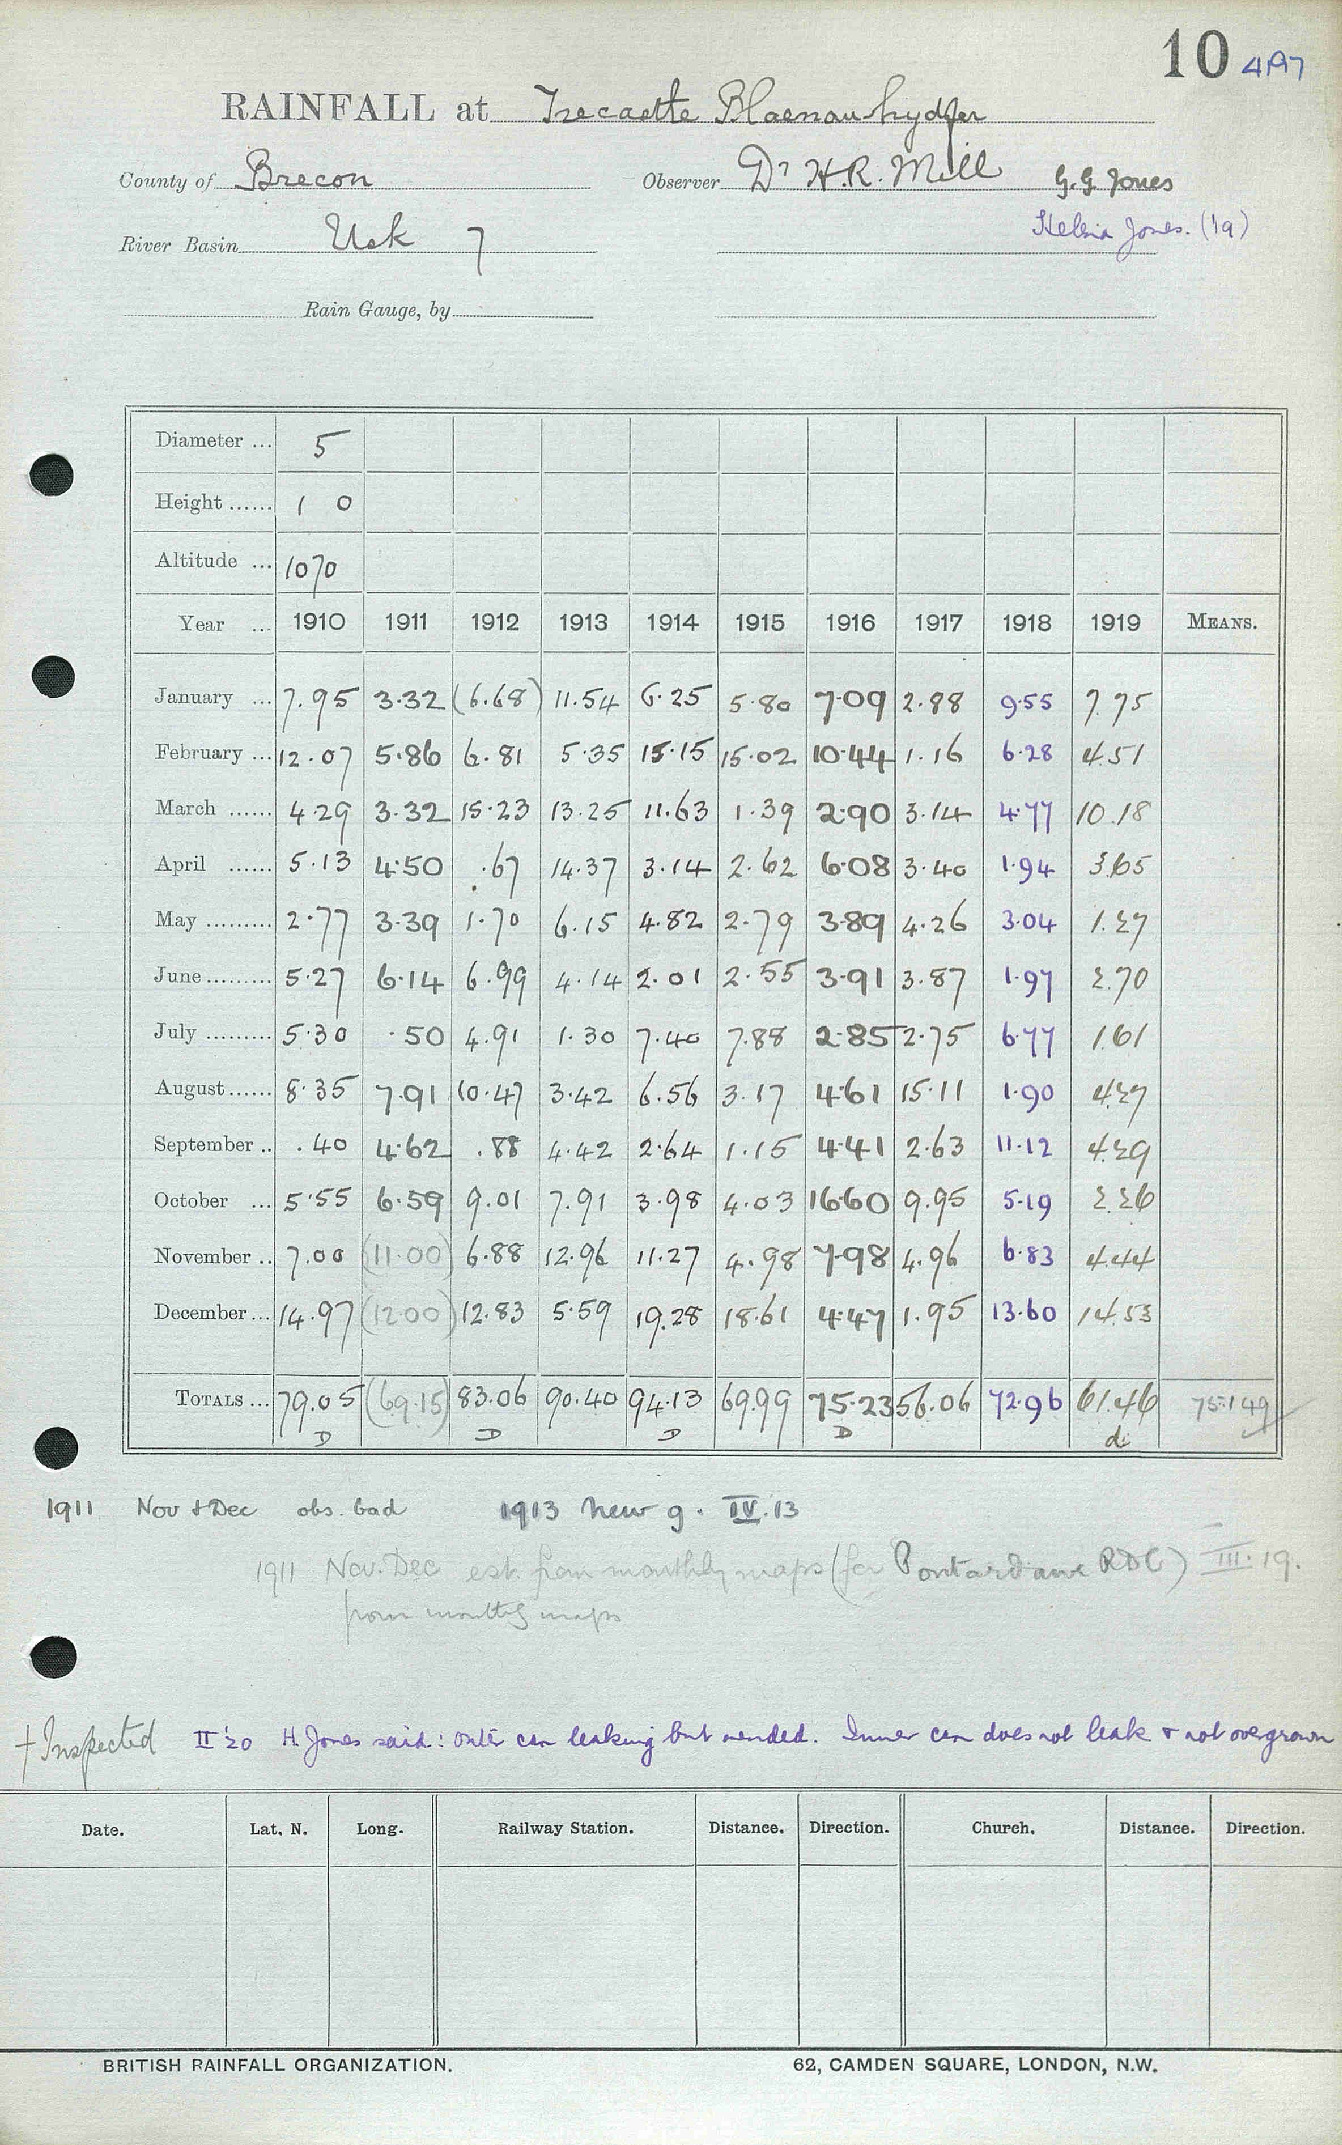 10 4197
RAINFALL at Trecastle Blaenau-hydfer
County of Brecon Observer Dr H.R. Mill G.G. Jones
River Basin Usk 7 Jones. ('19)
Rain Gauge, by
Diameter ... 5
Height ...... 1 0
Altitude ... 1070
Year ... 1910 1911 1912 1913 1914 1915 1916 1917 1918 1919 MEANS.
January ... 7.95 3.32 (6.68) 11.54 6.25 5.80 7.09 2.88 9.55 7.75
February ... 12.07 5.86 6.81 5.35 15.15 15.02 10.44 1.16 6.28 4.51
March ...... 4.29 3.32 15.23 13.25 11.63 1.39 2.90 3.14 4.77 10.18
April ...... 5.13 4.50 .67 14.37 3.14 2.62 6.08 3.40 1.94 3.65
May ......... 2.77 3.39 1.70 6.15 4.82 2.79 3.89 4.26 3.04 1.27
June ......... 5.27 6.14 6.99 4.14 2.01 2.55 3.91 3.87 1.97 2.70
July ......... 5.30 .50 4.91 1.30 7.40 7.88 2.85 2.75 6.77 1.61
August ...... 8.35 7.91 10.47 3.42 6.56 3.17 4.61 15.11 1.90 4.27
September .. .40 4.62 .88 4.42 2.64 1.15 4.41 2.63 11.12 4.29
October ... 5.55 6.59 9.01 7.91 3.98 4.03 16.60 9.95 5.19 2.26
November .. 7.00 (11.00) 6.88 12.96 11.27 4.98 7.98 4.96 6.83 4.44
December ... 14.97 (12.00) 12.83 5.59 19.28 18.61 4.47 1.95 13.60 14.53
TOTALS ... 79.05 (69.15) 83.06 90.40 94.13 69.99 75.23 56.06 72.96 61.46 75.149
D D D D d
1911 Nov & Dec obs. bad 1913 New g. IV.13
1911 Nov. Dec est. from monthly maps (for Pontardawe RDC) III.19.
from monthly maps
† Inspected II '20 H Jones said: outer can leaking but mended. Inner can does not leak & not overgrown
Date. Lat. N. Long. Railway Station. Distance. Direction. Church. Distance. Direction.
BRITISH RAINFALL ORGANIZATION. 62, CAMDEN SQUARE, LONDON, N.W.